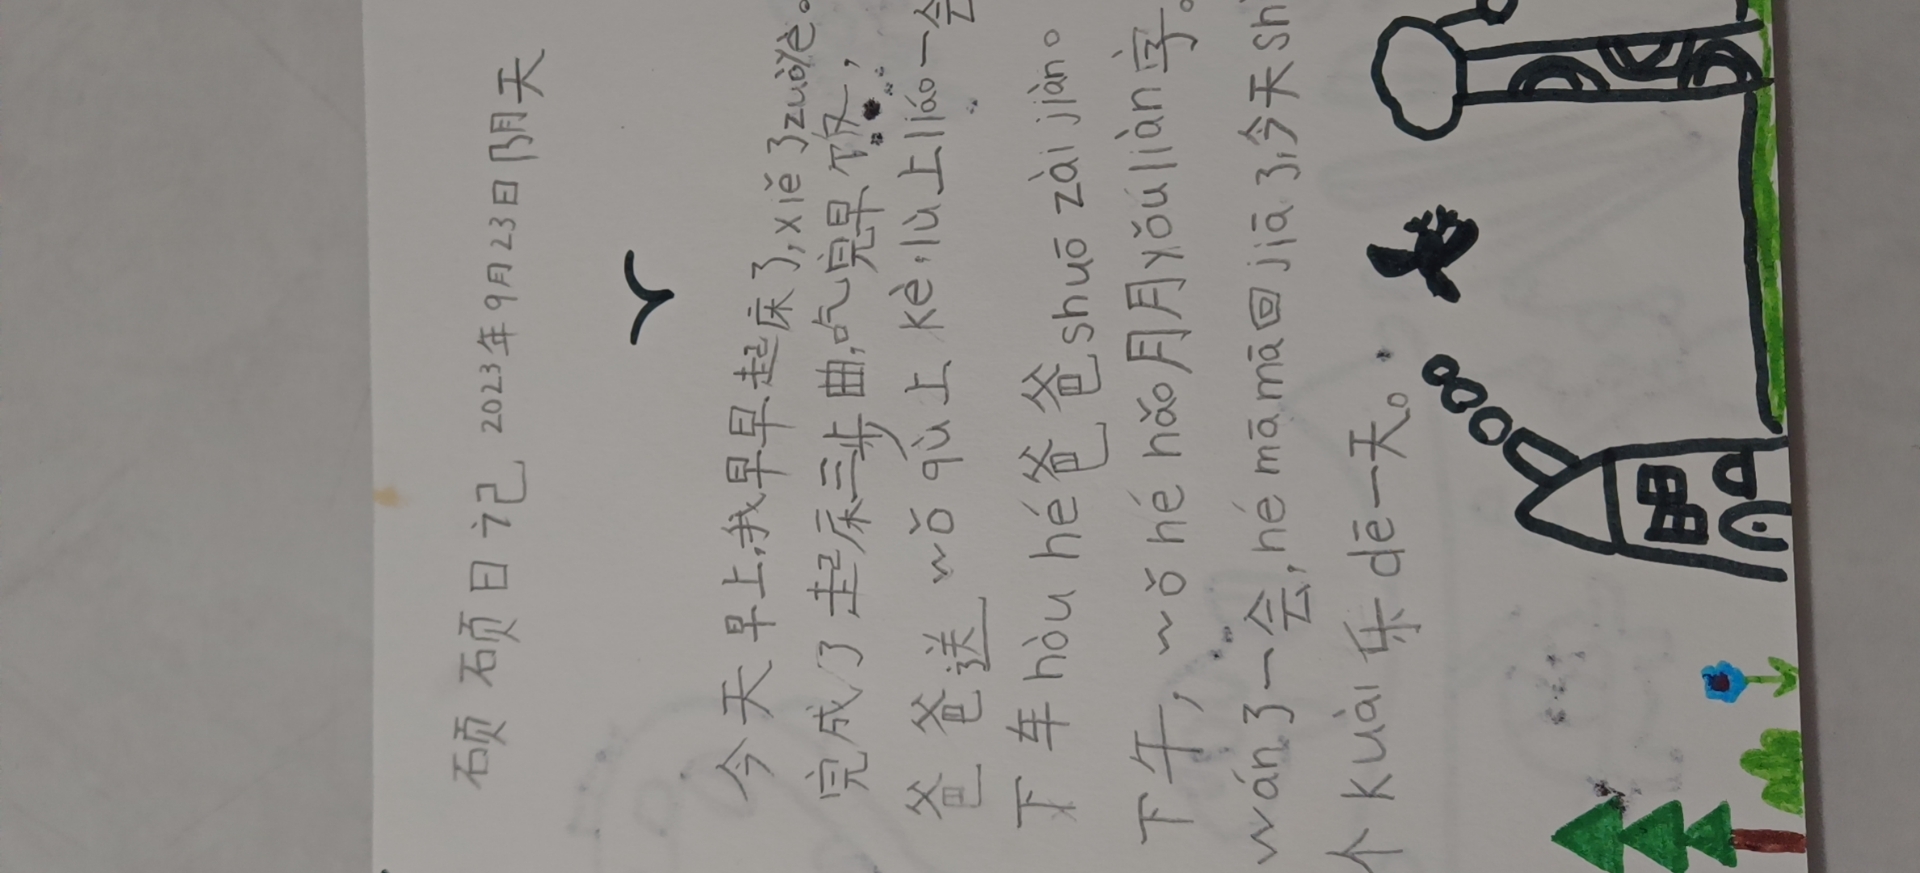 硕硕日记 2023年9月23日 阴天
今天早上,我早早起床了,xiě了zuòyè。
完成了起床三步曲,吃完早饭,
爸爸送wǒ qù上kè,lù上liáo一会
下车hòu hé爸爸shuō zài jiàn。
下午,wǒ hé hǎo月月yǒu liàn字。
wán了一会,hé māmā回jiā了,今天sh
个kuài乐dē一天。